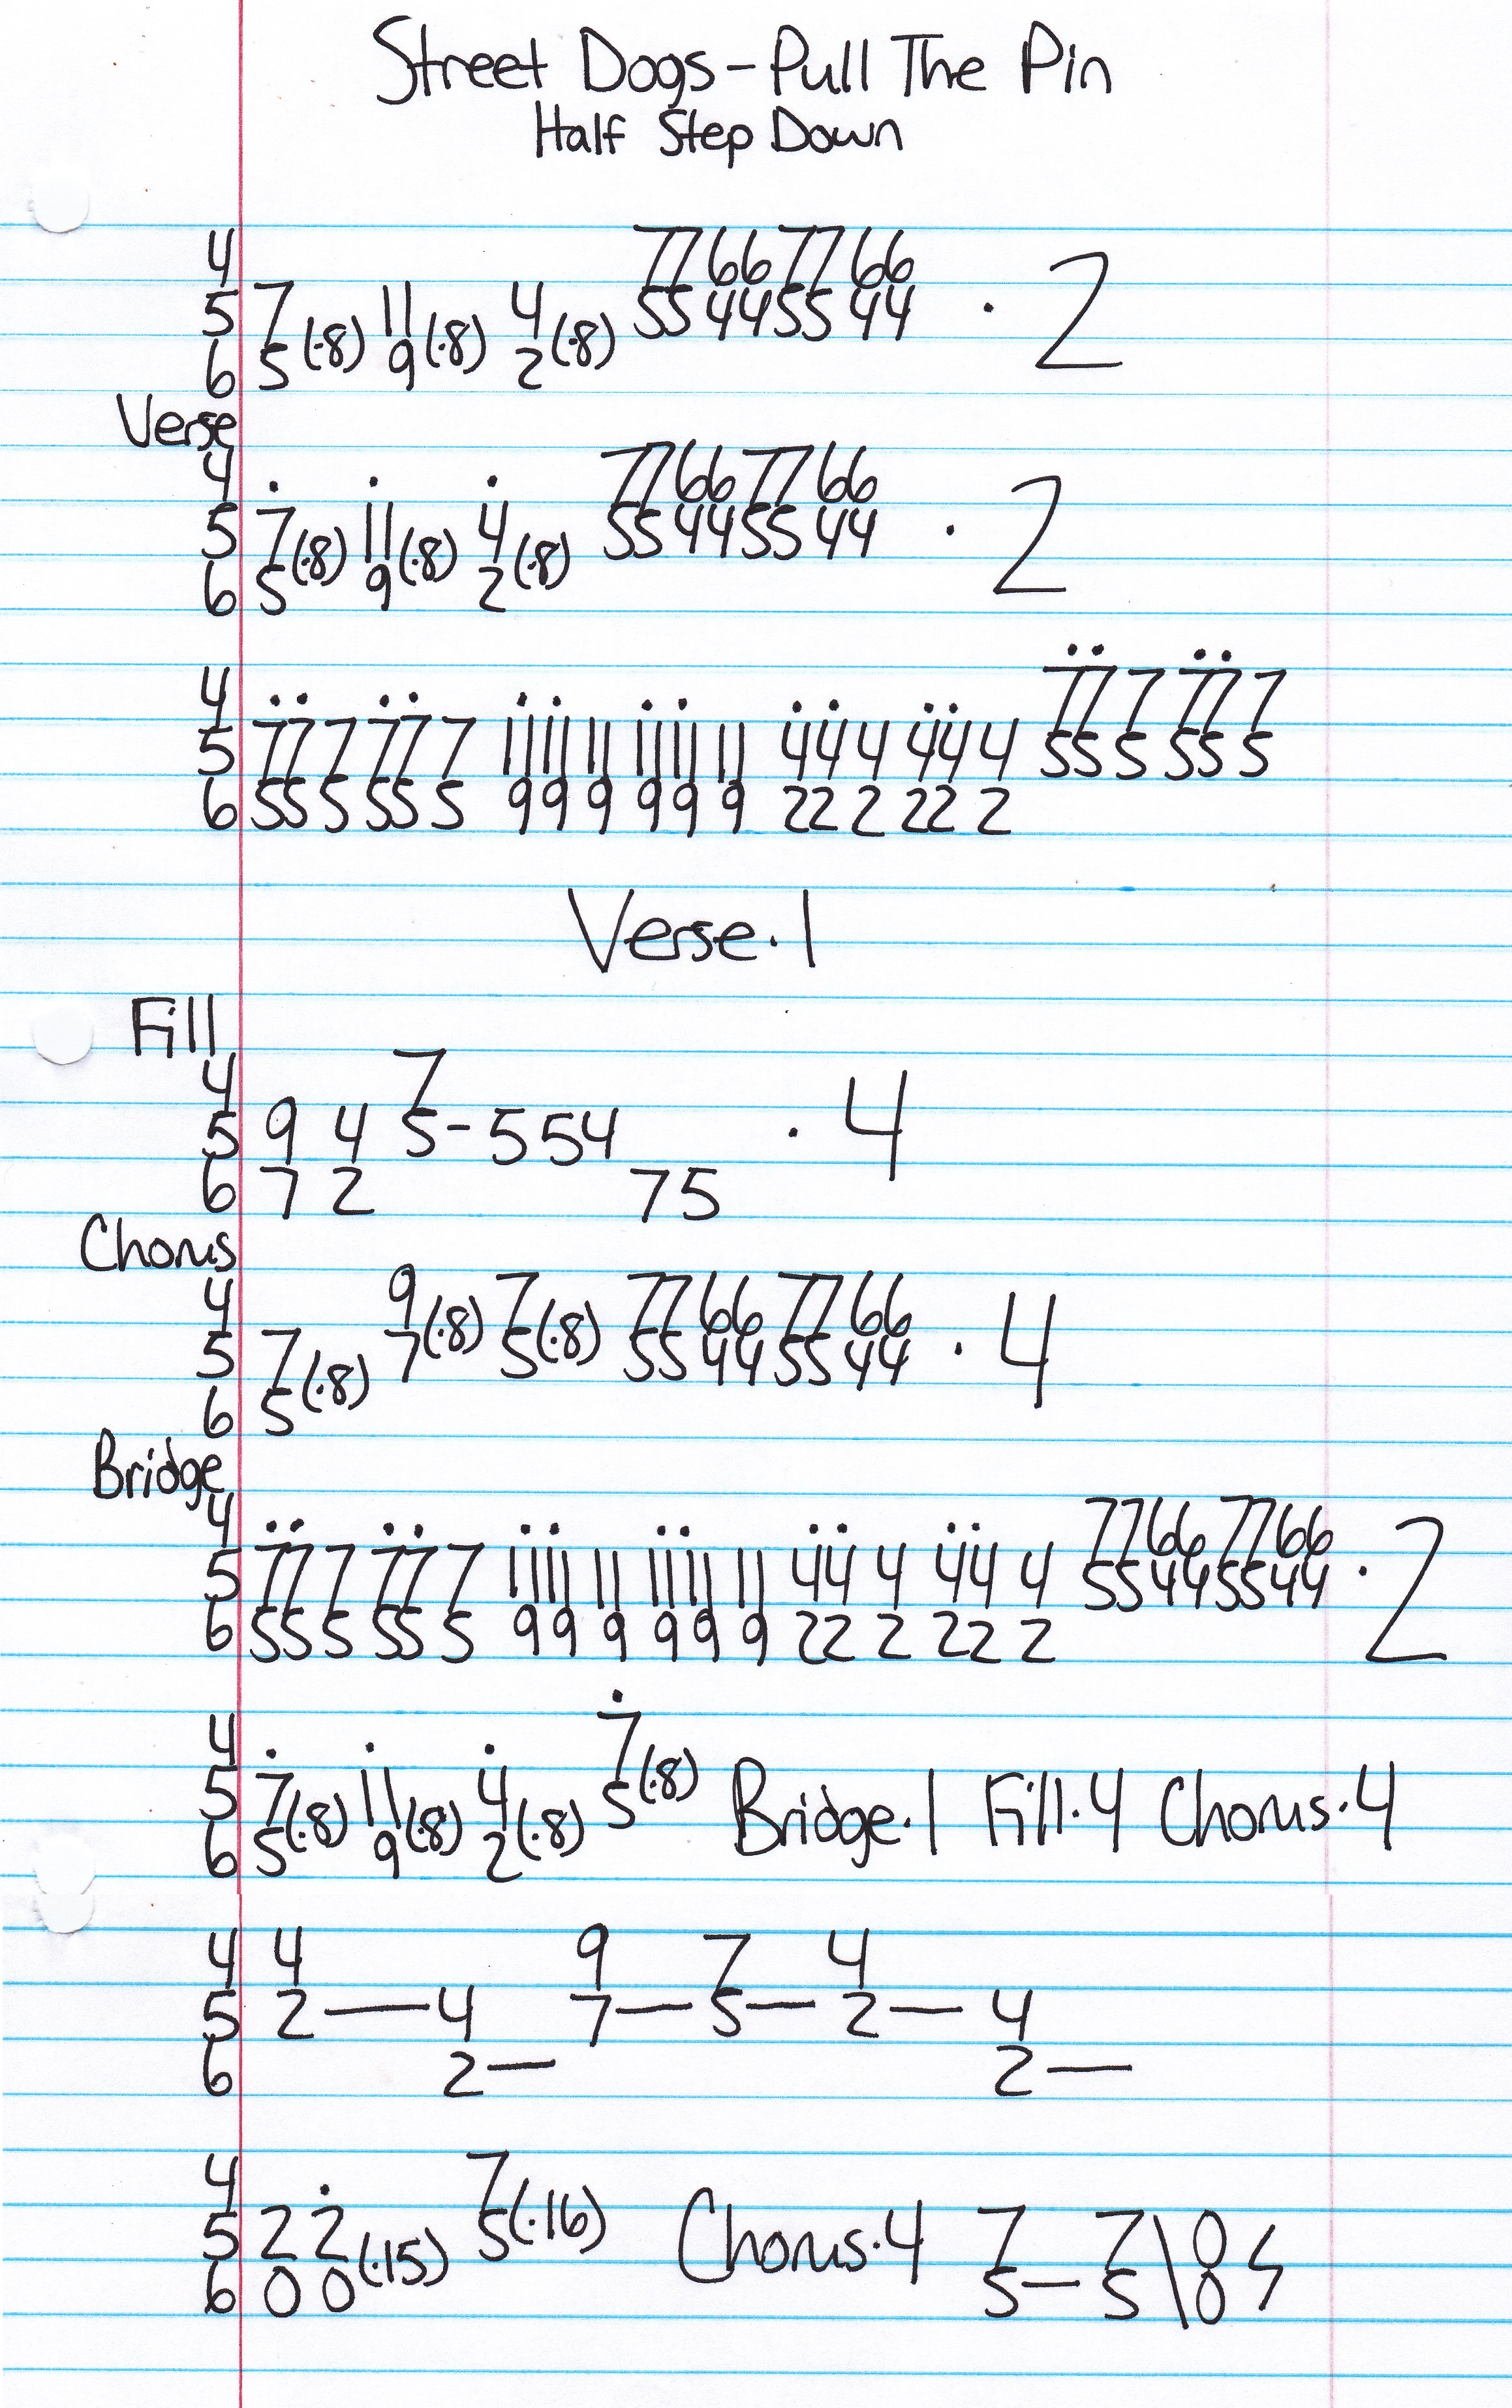 Street Dogs - Pull The Pin
Half Step Down
4 77 66 77 66
5 7 (·8) 11 (·8) 4 (·8) 55 44 55 44 · 2
6 5 9 2
Verse
4 77 66 77 66
5 7 (·8) 11 (·8) 4 (·8) 55 44 55 44 · 2
6 5 9 2
4 77 7 77 7
5 77 7 77 7 11 11 11 11 11 11 44 4 44 4 55 5 55 5
6 55 5 55 5 99 9 99 9 22 2 22 2
Verse·1
Fill
4 7
5 9 4 5 - 5 5 4 · 4
6 7 2 7 5
Chorus
4 9 7 77 66 77 66
5 7 (·8) 7 (·8) 5 (·8) 55 44 55 44 · 4
6 5
Bridge
4 77 66 77 66
5 77 7 77 7 11 11 11 11 11 11 44 4 44 4 55 44 55 44 · 2
6 55 5 55 5 99 9 99 9 22 2 22 2
4 7
5 7 (·8) 11 (·8) 4 (·8) 5 (·8) Bridge·1 Fill·4 Chorus·4
6 5 9 2
4 4 9 7 4
5 2 — 4 7 — 5 — 2 — 4
6 2 — 2 —
4 7
5 2 2 (·15) 5 (·16) Chorus·4 7 7 \ 0
6 0 0 5 — 5 0